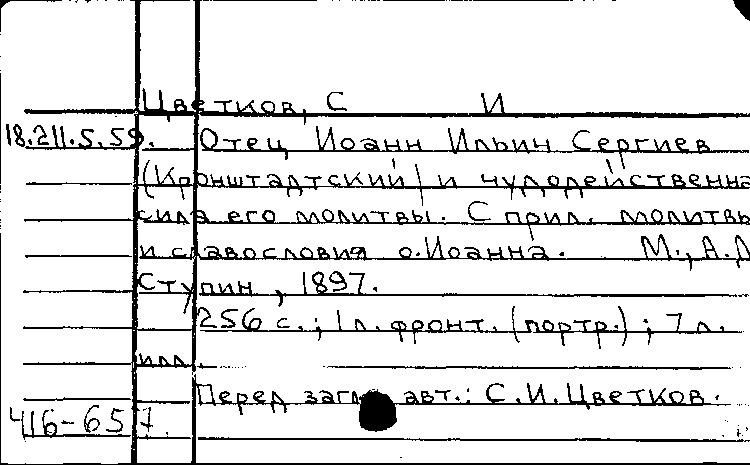 Цветков, С И
18.211.5.59. Отец Иоанн Ильич Сергиев
(Кронштадтский) и чудодейственна
сила его молитвы. С прил. молитвы
и славословия о.Иоанна. М., А.Д
Ступин, 1897.
256 с.; 1 л. фронт. (портр.); 7 л.
илл.
Перед загл. авт.: С.И.Цветков.
416-657.